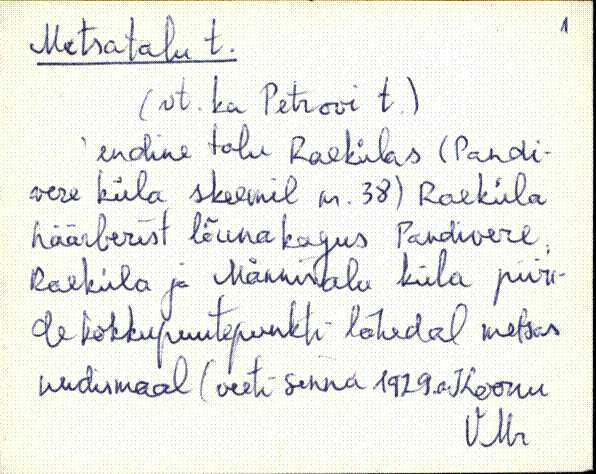 1
Metsatalu t.
(vt. ka Petrovi t.)
endine talu Raekülas (Pandi-
vere küla skeemil nr. 38) Raeküla
häärberist lõunakagus Pandivere,
Raeküla ja Männisalu küla piiri-
de kokkupuutepunkti lähedal metsas
uudismaal (veeti sinna 1929.a.
V Mr